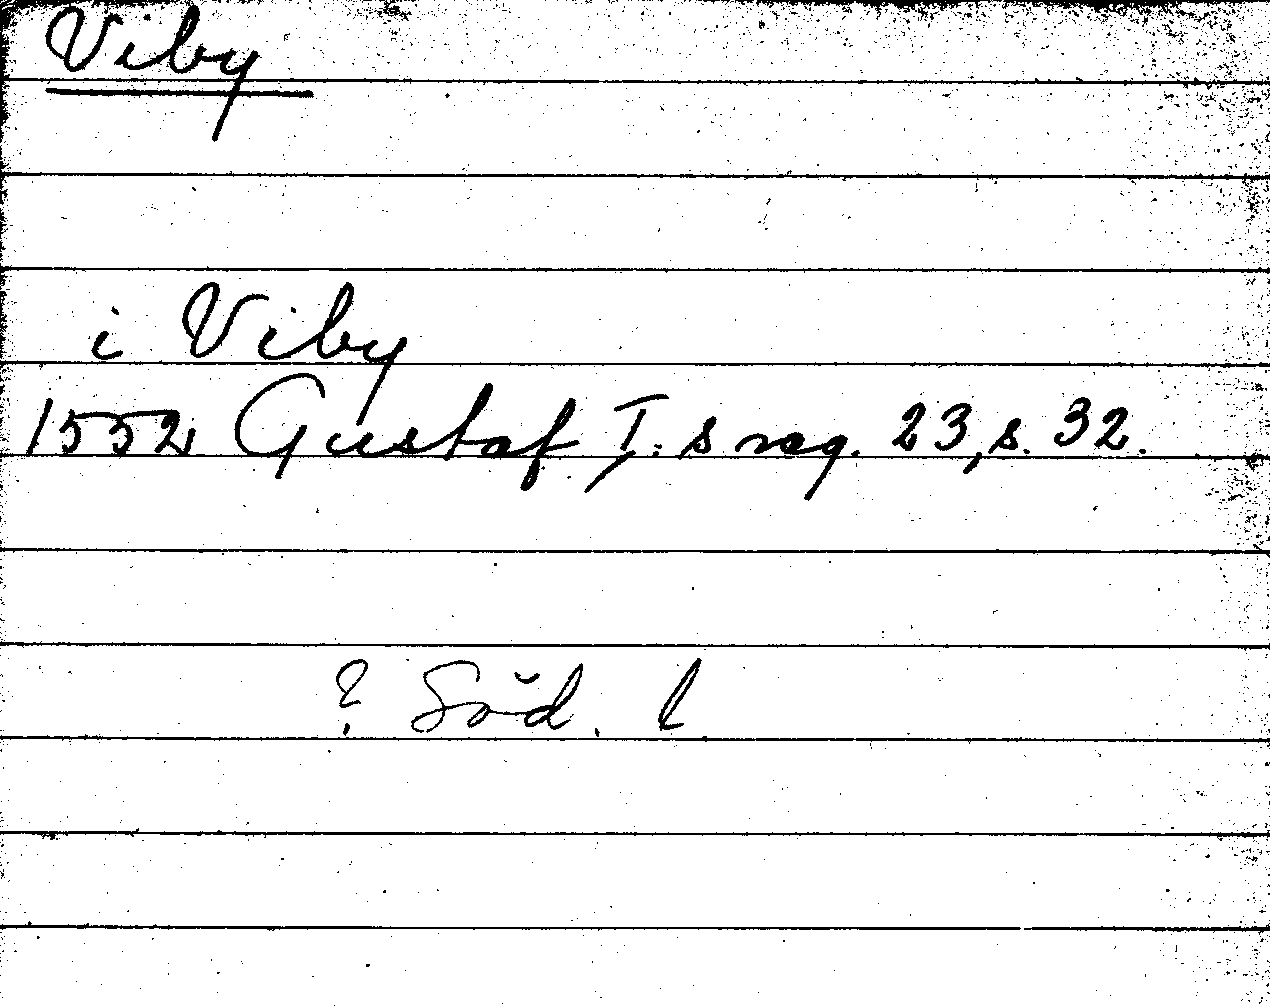 Viby
i Viby
1552 Gustaf I:s reg. 23, s. 32.
? Söd. l